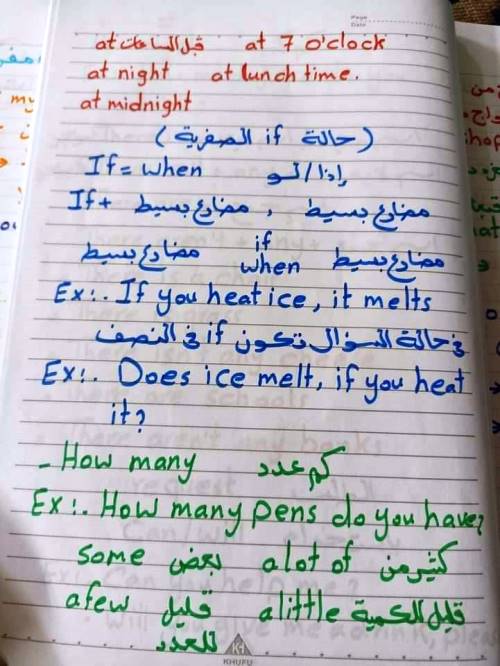 Page
Date
at قبل الساعات    at 7 o'clock
at night    at lunch time.
at midnight
( حالة if الصفرية )
If = when    إذا / لو
If + مضارع بسيط , مضارع بسيط
مضارع بسيط if when مضارع بسيط
Ex:. If you heat ice, it melts
فى حالة السؤال تكون if فى النصف
Ex:. Does ice melt, if you heat
it?
- How many    كم عدد
Ex:. How many pens do you have?
some بعض    a lot of كثير من
a few قليل للعدد    a little قليل الكمية
KHUFU